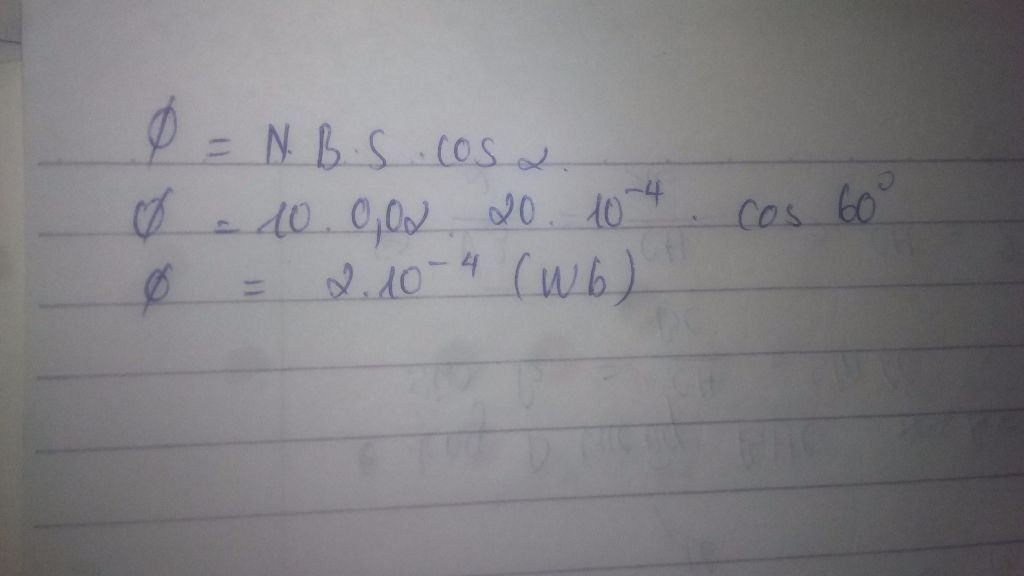 Ø = N. B. S. cos α.
Ø = 10. 0,02. 20. 10⁻⁴. cos 60°
Ø = 2.10⁻⁴ (Wb)